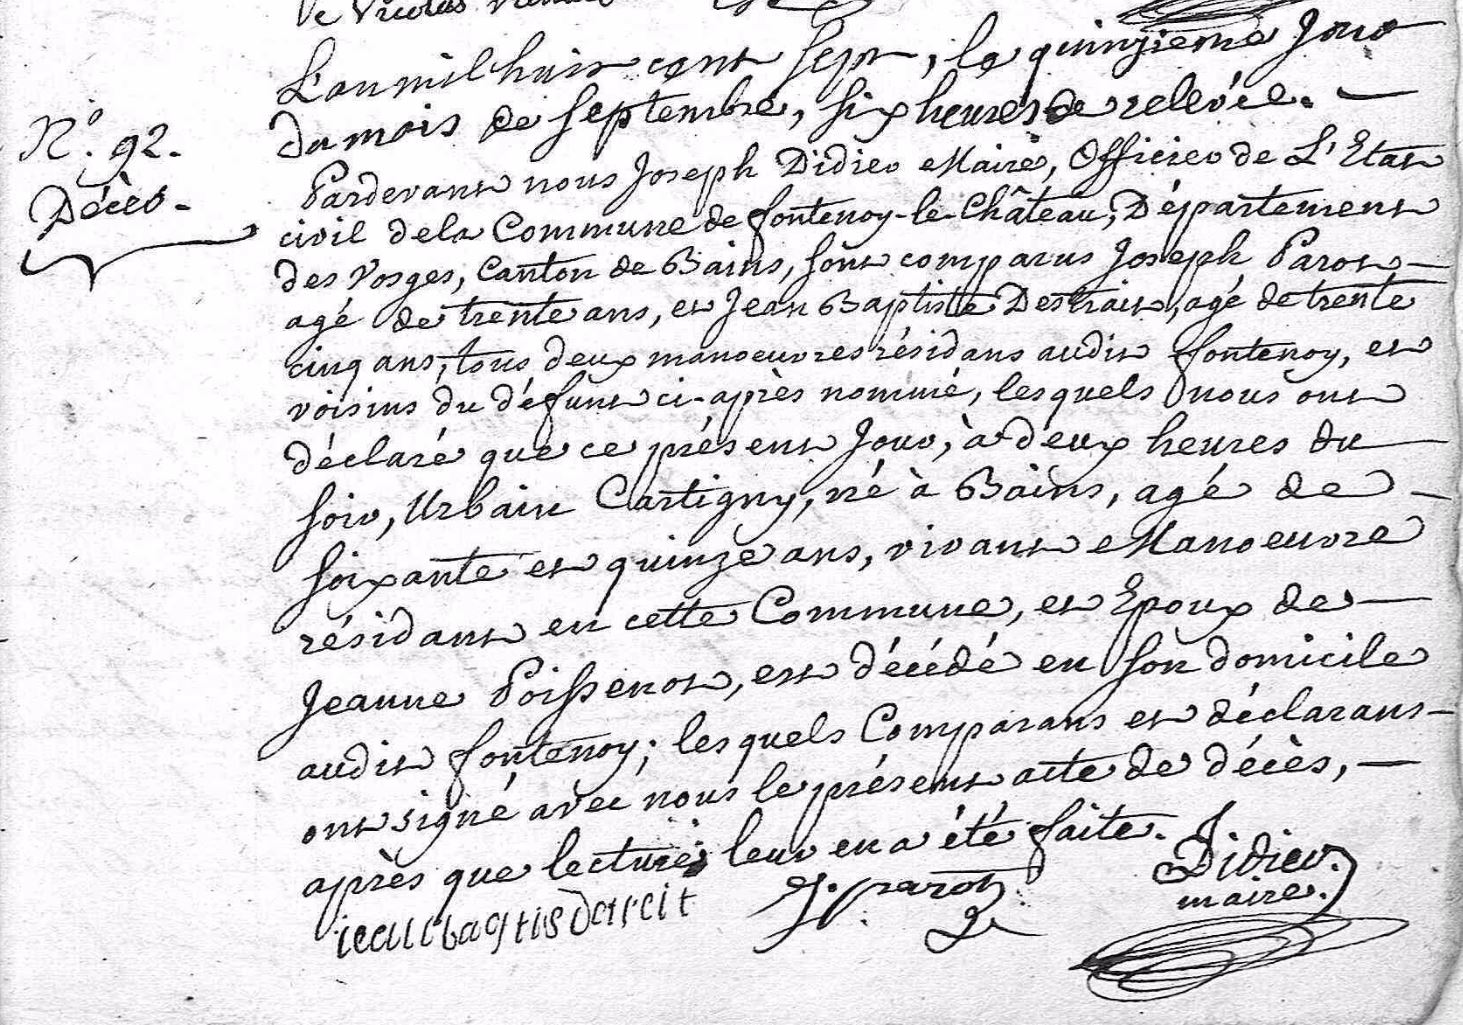 de Nicolas
L'an mil huit cent sept, le quinzieme Jour
du mois de Septembre, six heures de relevée.
N.° 92.
Décès.
Pardevant nous Joseph Didier Maire, Officier de L'Etat
civil dela Commune de fontenoy-le-Château, Département
des Vosges, Canton de Bains, sont comparus Joseph Parot
agé de trente ans, et Jean Baptiste Destrait, agé de trente
cinq ans, tous deux manoeuvres résidans audit fontenoy, et
voisins du défunt ci-après nommé, lesquels nous ont
déclaré que ce présent Jour, à deux heures du
soir, Urbain Cartigny, né à Bains, agé de
soixante et quinze ans, vivant Manoeuvre
résidant en cette Commune, et Epoux de
Jeanne Poissenot, est décédé en son domicile
audit fontenoy; lesquels Comparans et déclarans
ont signé avec nous le présent acte de décès,
après que lecture leur en a été faite.
J. Didier
maire.
J. parot
jean baptis